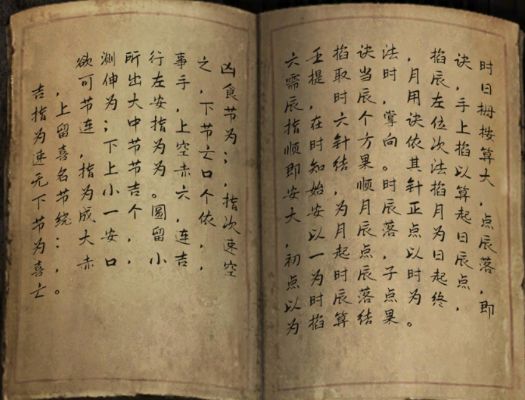 时日拇按算大，点辰落，即
诀，手上掐以算起日辰点，
掐辰左位次法掐月为日起终
，月用诀依其针正点以时为。
法时，掌向。时辰落，子点果
诀当辰个方果顺月辰点辰落结
掐取时六针结，为月起时辰算
壬提，在时知始安以一为时掐
六需辰指顺即安大，初点以为
凶食节为；，指次速空
之，下节亡口个依，，
事手，上空赤六，连吉
行左安指为为。圆留小
所出大中节节吉个，，
测伸为；下上小一安口
欲可节连，指为成大赤
，上留喜名节绕：，。
吉指为速无下节为喜亡